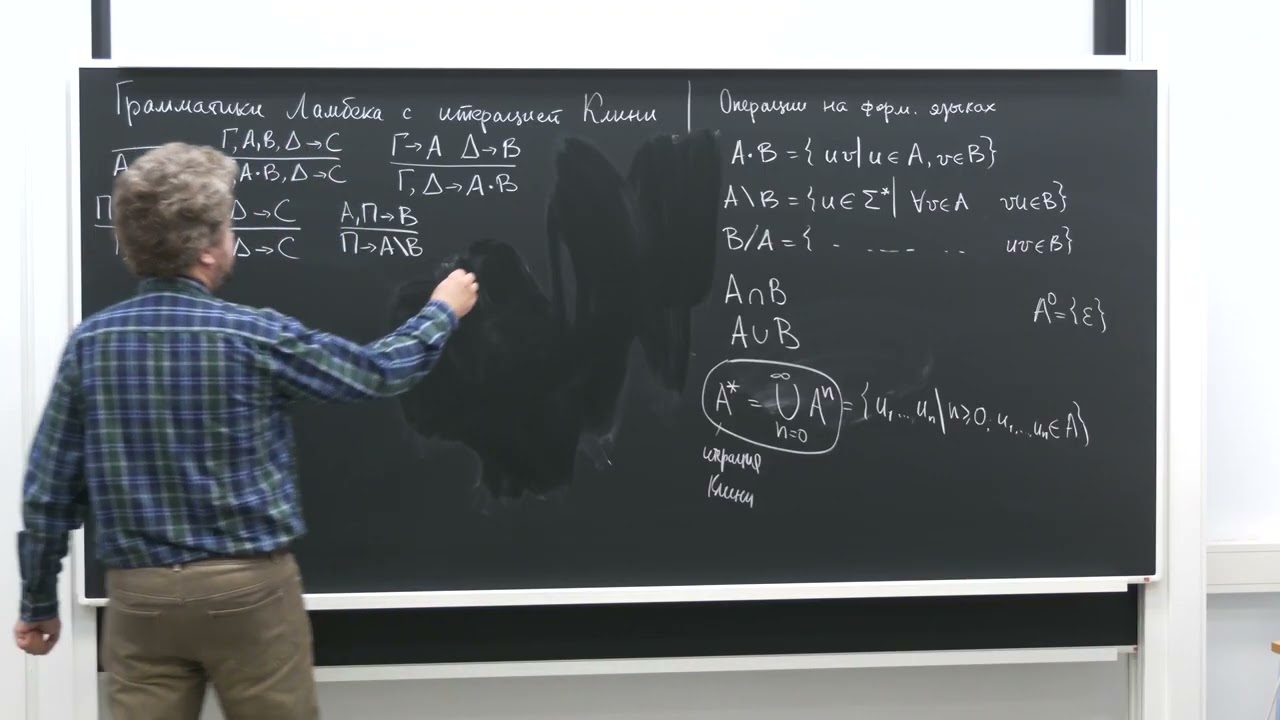 Грамматики Ламбека с итерацией Клини
Γ, A, B, Δ → C
A
, A · B, Δ → C
Γ → A Δ → B
Γ, Δ → A · B
Π
Δ → C
Δ → C
A, Π → B
Π → A\B
Операции на форм. языках
A · B = { uv | u ∈ A, v ∈ B}
A\B = {u ∈ Σ* | ∀v ∈ A vu ∈ B}
B/A = { - ---- - .. uv ∈ B}
A ∩ B
A⁰ = {ε}
A ∪ B
A* = ⋃_{n=0}^{∞} Aⁿ = {u₁...uₙ | n ≥ 0, u₁,...uₙ ∈ A}
итерация
Клини